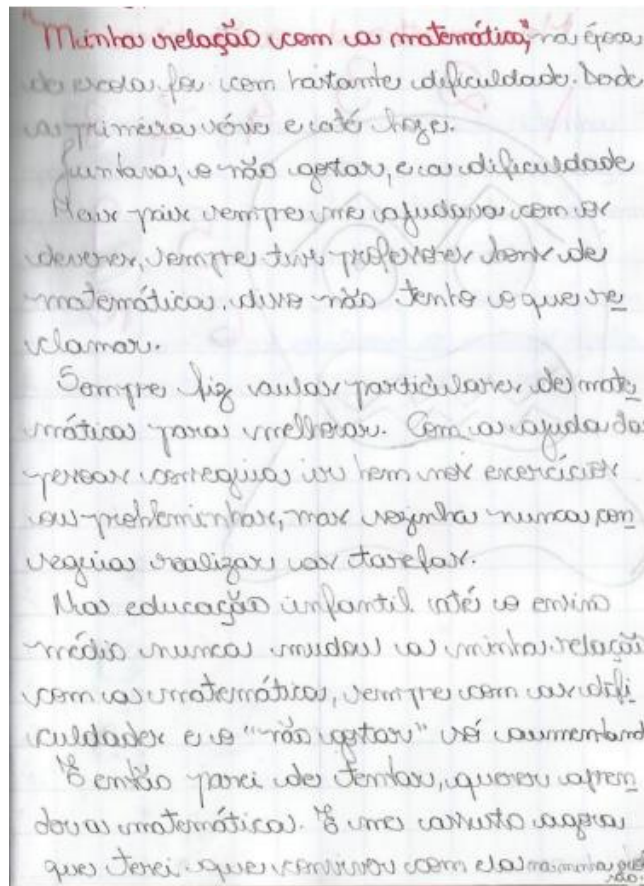 "Minha relação com a matemática," na época
de escola foi com bastante dificuldade. Desde
a primeira série e até hoje.
Juntava, o não gostar, e a dificuldade
Meus pais sempre me ajudava com os
deveres, sempre tive professores bons de
matemática, disso não tenho o que re
clamar.
Sempre fiz aulas particulares de mate
mática para melhorar. Com a ajuda das
pessoas conseguia ir bem nos exercícios
ou probleminhas, mas sozinha nunca con
seguia realizar as tarefas.
Na educação infantil até o ensino
médio nunca mudou a minha relação
com a matemática, sempre com as difi
culdades e o "não gostar" só aumentand
E então parei de tentar, querer apren
der a matemática. E me assusto agora
que terei que conviver com ela na minha